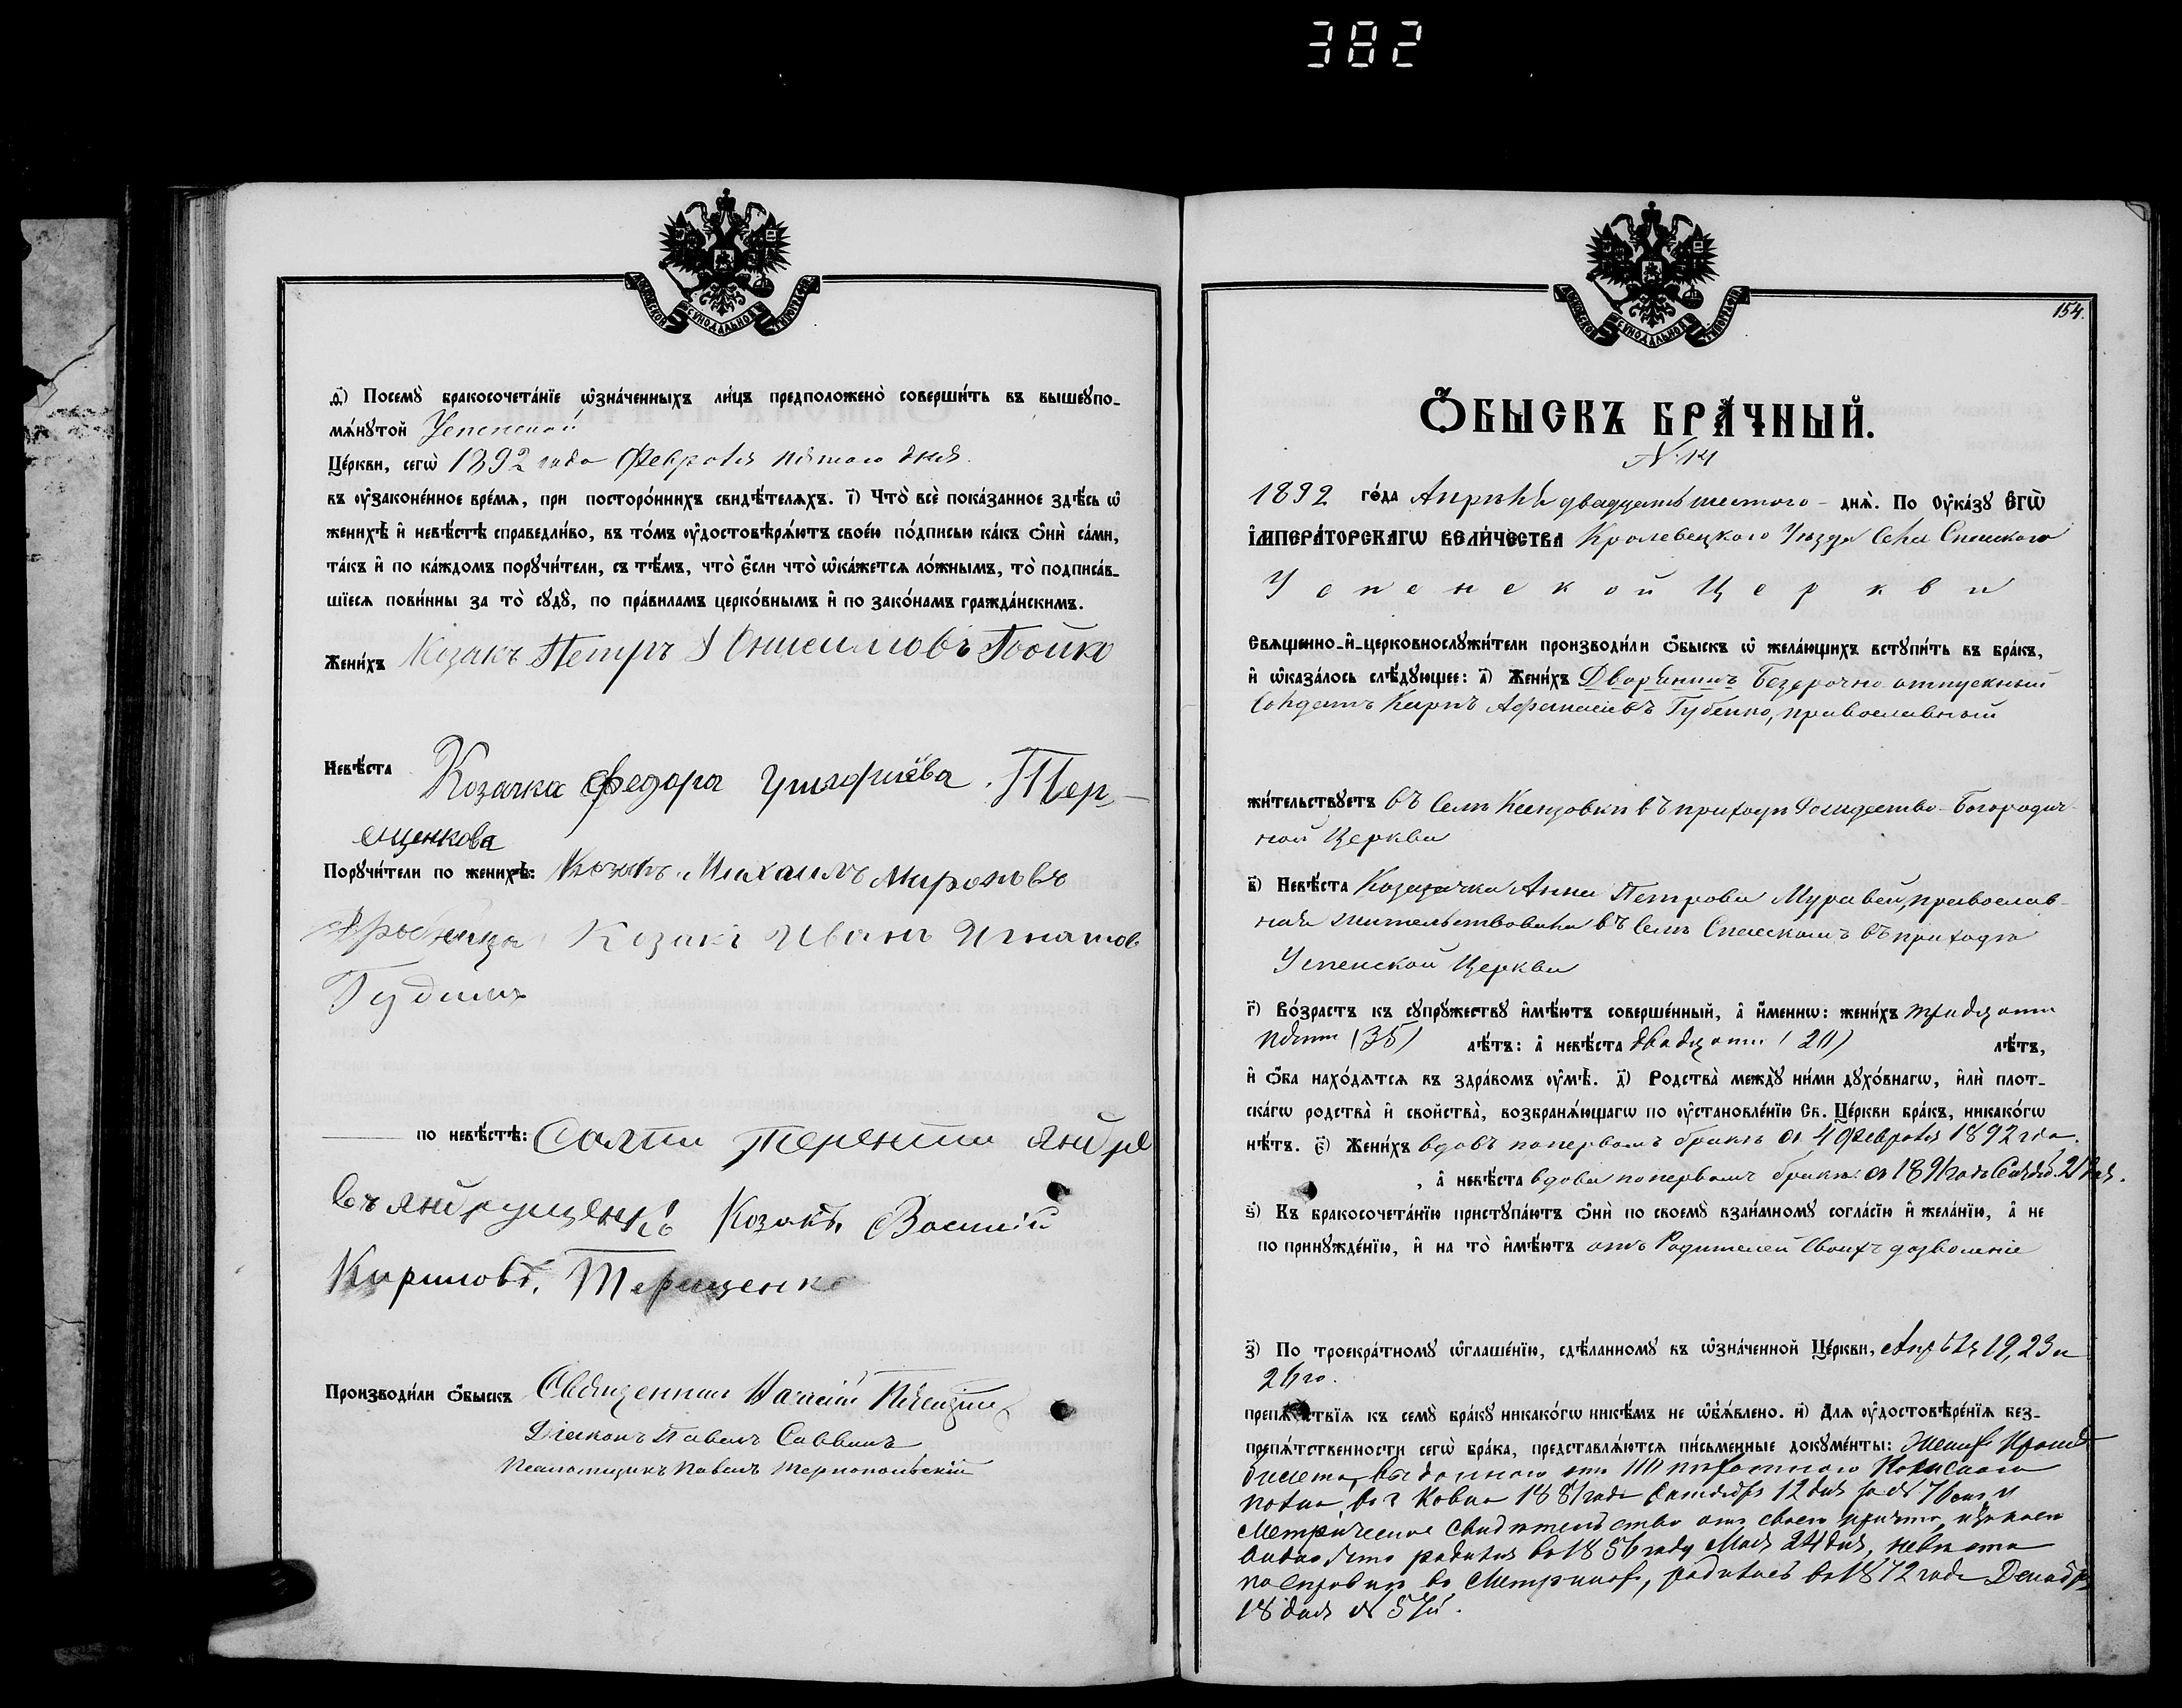 382
МОСКОВСКОЙ СѴНОДАЛЬНОЙ ТИПОГРАФІИ
д҃) Посемꙋ̀ бракосочета́нїе ѡ҆зна́ченныхъ ли́цъ предположено̀ соверши́ть въ вышеꙋпо-
мѧ́нꙋтой Успенской
Це́ркви, сегѡ̀ 1892 года Февраля пятаго дня
въ ᲂу҆законе́нное вре́мѧ, при посторо́ннихъ свидѣ́телѧхъ. і҃) Что̀ всѐ пока́занное здѣ́сь ѡ҆
женихѣ̀ и҆ невѣ́стѣ справедли́во, въ то́мъ ᲂу҆достовѣрѧ́ютъ свое́ю по́дписью ка́къ ѻ҆нѝ са́ми,
та́къ и҆ по ка́ждомъ порꙋчи́тели, съ тѣ́мъ, что̀ є҆́сли что̀ ѡ҆ка́жетсѧ ло́жнымъ, то̀ подписа́в-
шїесѧ пови́нны за то̀ сꙋдꙋ̀, по пра́виламъ церко́внымъ и҆ по зако́намъ гражда́нскимъ.
Жени́хъ Козакъ Петръ Бойко
Невѣ́ста Козачка Федора Григориева Тер-
ещенкова
Порꙋчи́тели по женихѣ̀: Козакъ Михаилъ Мироновъ
Козакъ Иванъ Игнатов
Гудимъ
по невѣ́стѣ: Терентий Андре
въ Андрущенко Козакъ Василий
Кириловъ Терещенко
Производи́ли ѻ҆́быскъ Священник Василий
Діаконъ Павелъ Саввинъ
Псаломщикъ Павелъ Тернопольскій
МОСКОВСКОЙ СѴНОДАЛЬНОЙ ТИПОГРАФІИ
154.
Ѻ҆́БЫСКЪ БРА́ЧНЫЙ.
№ 14
1892 го́да Апрѣля двадцать шестого - днѧ̀. По ᲂу҆ка́зꙋ Є҆ГѠ̀
І҆МПЕРА́ТОРСКАГѠ ВЕЛИ́ЧЕСТВА Кролевецкого Уѣзда Села Спаского
Успенской Церкви
Свѧщенно-и҆-церковнослꙋжи́тели производи́ли ѻ҆́быскъ ѡ҆ жела́ющихъ встꙋпи́ть въ бра́къ,
и҆ ѡ҆каза́лось слѣ́дꙋющее: а҃) Жени́хъ Дворянинъ Безсрочно-отпускный
Солдатъ Карпъ Афанасиевъ Губенко, православный
жи́тельствꙋетъ въ Селѣ въ приходѣ Рождество-Богородич-
ной Церкви
в҃) Невѣ́ста Козачка Анна Петрова Муравей, православ-
ная жительствовала въ Селѣ Спасскомъ въ приходѣ
Успенской Церкви
г҃) Во́зрастъ къ сꙋпрꙋ́жествꙋ и҆мѣ́ютъ соверше́нный, а҆ и҆́меннѡ: жени́хъ тридцати
пяти (35) лѣ́тъ: а҆ невѣ́ста двадцати (20) лѣ́тъ,
и҆ ѻ҆́ба нахо́дѧтсѧ въ здра́вомъ ᲂу҆мѣ̀. д҃) Родства̀ междꙋ̀ ни́ми дꙋхо́внагѡ, и҆лѝ плот-
ска́гѡ родства̀ и҆ сво́йства̀, возбранѧ́ющагѡ по ᲂу҆становле́нїю Св. Це́ркви бра́къ, никако́гѡ
нѣ́тъ. є҃) Жени́хъ вдовъ по первомъ бракѣ съ 4 Февраля 1892 года.
, а҆ невѣ́ста вдова по первомъ бракѣ съ 1891 года
ѕ҃) Къ бракосочета́нїю пристꙋпа́ютъ ѻ҆нѝ по своемꙋ̀ взаи́мномꙋ согла́сїю и҆ жела́нїю, а҆ не
по принꙋжде́нїю, и҆ на то̀ и҆мѣ́ютъ отъ Родителей своихъ дозволеніе
з҃) По троекра́тномꙋ ѡ҆глаше́нїю, сдѣ́ланномꙋ въ ѡ҆зна́ченной Це́ркви, Апрѣля 19, 23 и
26 го.
препѧ́тствїѧ къ семꙋ̀ бра́кꙋ никако́гѡ никѣ́мъ не ѡ҆бъѧ́влено. и҃) Длѧ ᲂу҆достовѣре́нїѧ без-
препѧ́тственности сегѡ̀ бра́ка, представлѧ́ютсѧ пи́сьменные докꙋме́нты:
билета, выданного отъ 111 пѣхотного
полка въ г. Ковно 1881 года 12 дня за № 76 и
Метрическое свидѣтельство отъ своего причта, изъ коего
видно что родился въ 1856 году Мая 24 дня, невѣста
по справкѣ въ Метрикахъ, родилась въ 1872 года Декабря
18 дня № 57й.